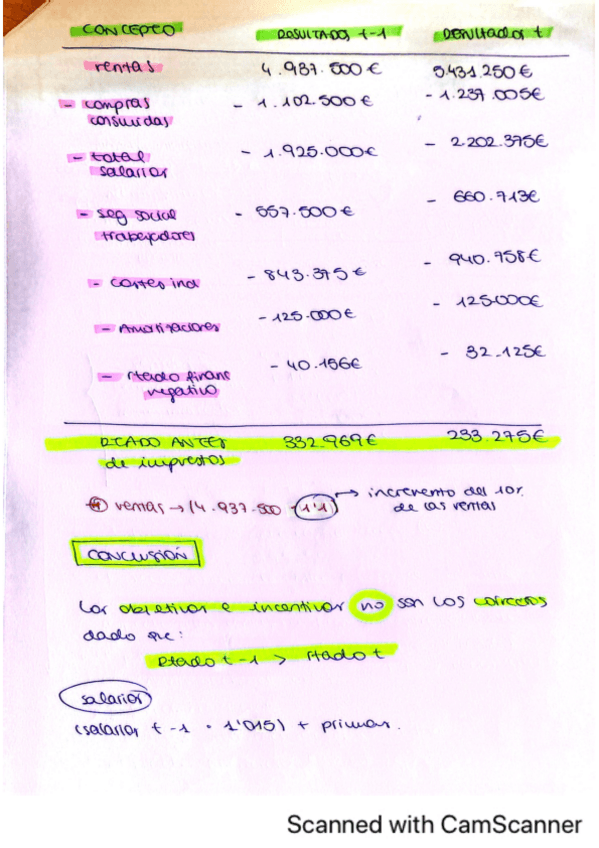 CONCEPTO RESULTADOS t-1 RESULTADOS t
ventas 4.937.500€ 5.431.250€
- compras - 1.102.500€ - 1.237.005€
consumidas
- total - 1.925.000€ - 2.202.375€
salarios
- seg social - 557.500€ - 660.713€
trabajadores
- costes ind - 843.375€ - 940.758€
- Amortizaciones - 125.000€ - 125.000€
- rtado finans - 40.156€ - 32.125€
negativo
RTADO ANTES 332.969€ 233.275€
de impuestos
ventas → (4.937.500 · 1'1) → incremento del 10%
de las ventas
CONCLUSIÓN
Los objetivos e incentivos no son los correctos
dado que:
Rtado t-1 > rtado t
salarios
(salarios t-1 · 1'015) + primas.
Scanned with CamScanner